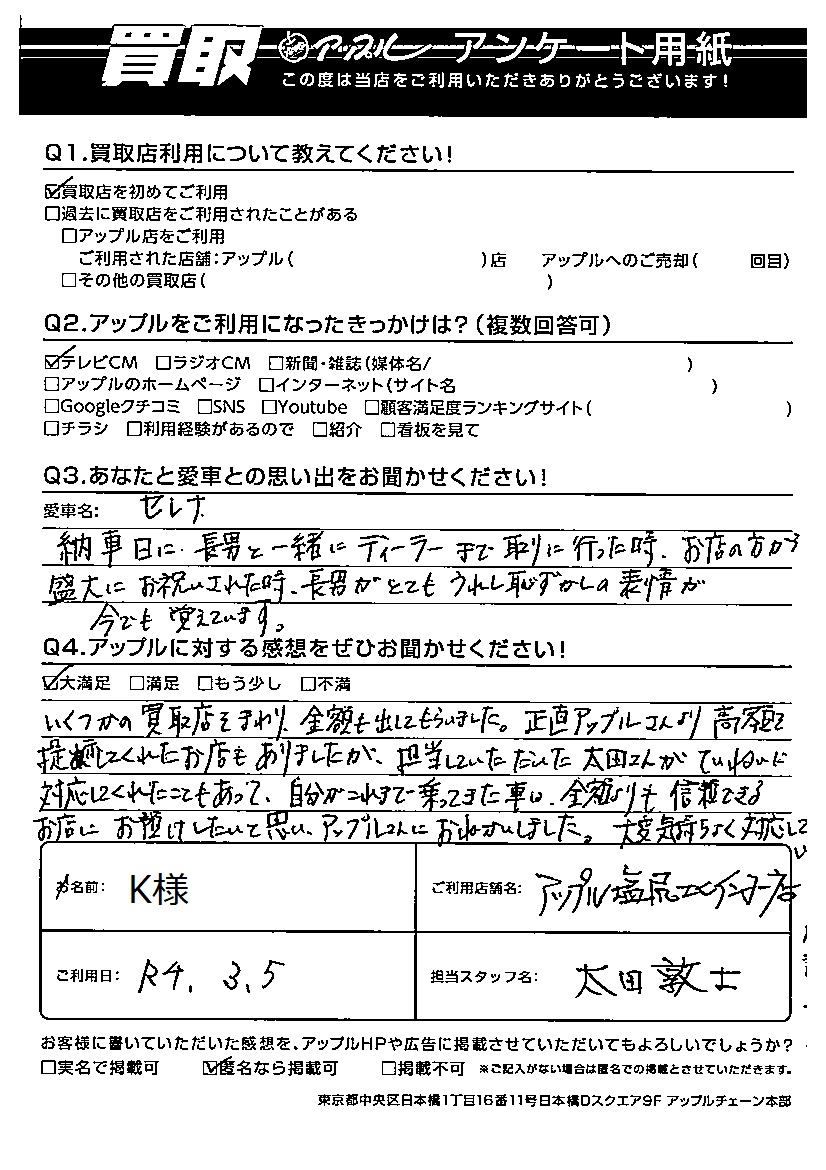 買取 アップル アンケート用紙
この度は当店をご利用いただきありがとうございます!
Q1.買取店利用について教えてください!
☑買取店を初めてご利用
□過去に買取店をご利用されたことがある
□アップル店をご利用
ご利用された店舗:アップル( )店 アップルへのご売却( 回目)
□その他の買取店( )
Q2.アップルをご利用になったきっかけは?(複数回答可)
☑テレビCM □ラジオCM □新聞・雑誌(媒体名/ )
□アップルのホームページ □インターネット(サイト名 )
□Googleクチコミ □SNS □Youtube □顧客満足度ランキングサイト( )
□チラシ □利用経験があるので □紹介 □看板を見て
Q3.あなたと愛車との思い出をお聞かせください!
愛車名: セレナ
納車日に、長男と一緒にディーラーまで取りに行った時、お店の方から
盛大にお祝いされた時、長男がとてもうれし恥ずかしの表情が
今でも覚えています。
Q4.アップルに対する感想をぜひお聞かせください!
☑大満足 □満足 □もう少し □不満
いくつかの買取店をまわり、金額も出してもらいました。正直アップルさんより高額を
提示してくれたお店もありましたが、担当していただいた太田さんがていねいに
対応してくれたこともあって、自分がこれまで乗ってきた車は、金額よりも信頼できる
お店にお預けしたいと思い、アップルさんにおねがいしました。大変気持ちよく対応して
お名前: K様 ご利用店舗名: アップル塩尻北インター店
ご利用日: R4. 3. 5 担当スタッフ名: 太田敦士
お客様に書いていただいた感想を、アップルHPや広告に掲載させていただいてもよろしいでしょうか?
□実名で掲載可 ☑匿名なら掲載可 □掲載不可 ※ご記入がない場合は匿名での掲載とさせていただきます。
東京都中央区日本橋1丁目16番11号日本橋Dスクエア9F アップルチェーン本部